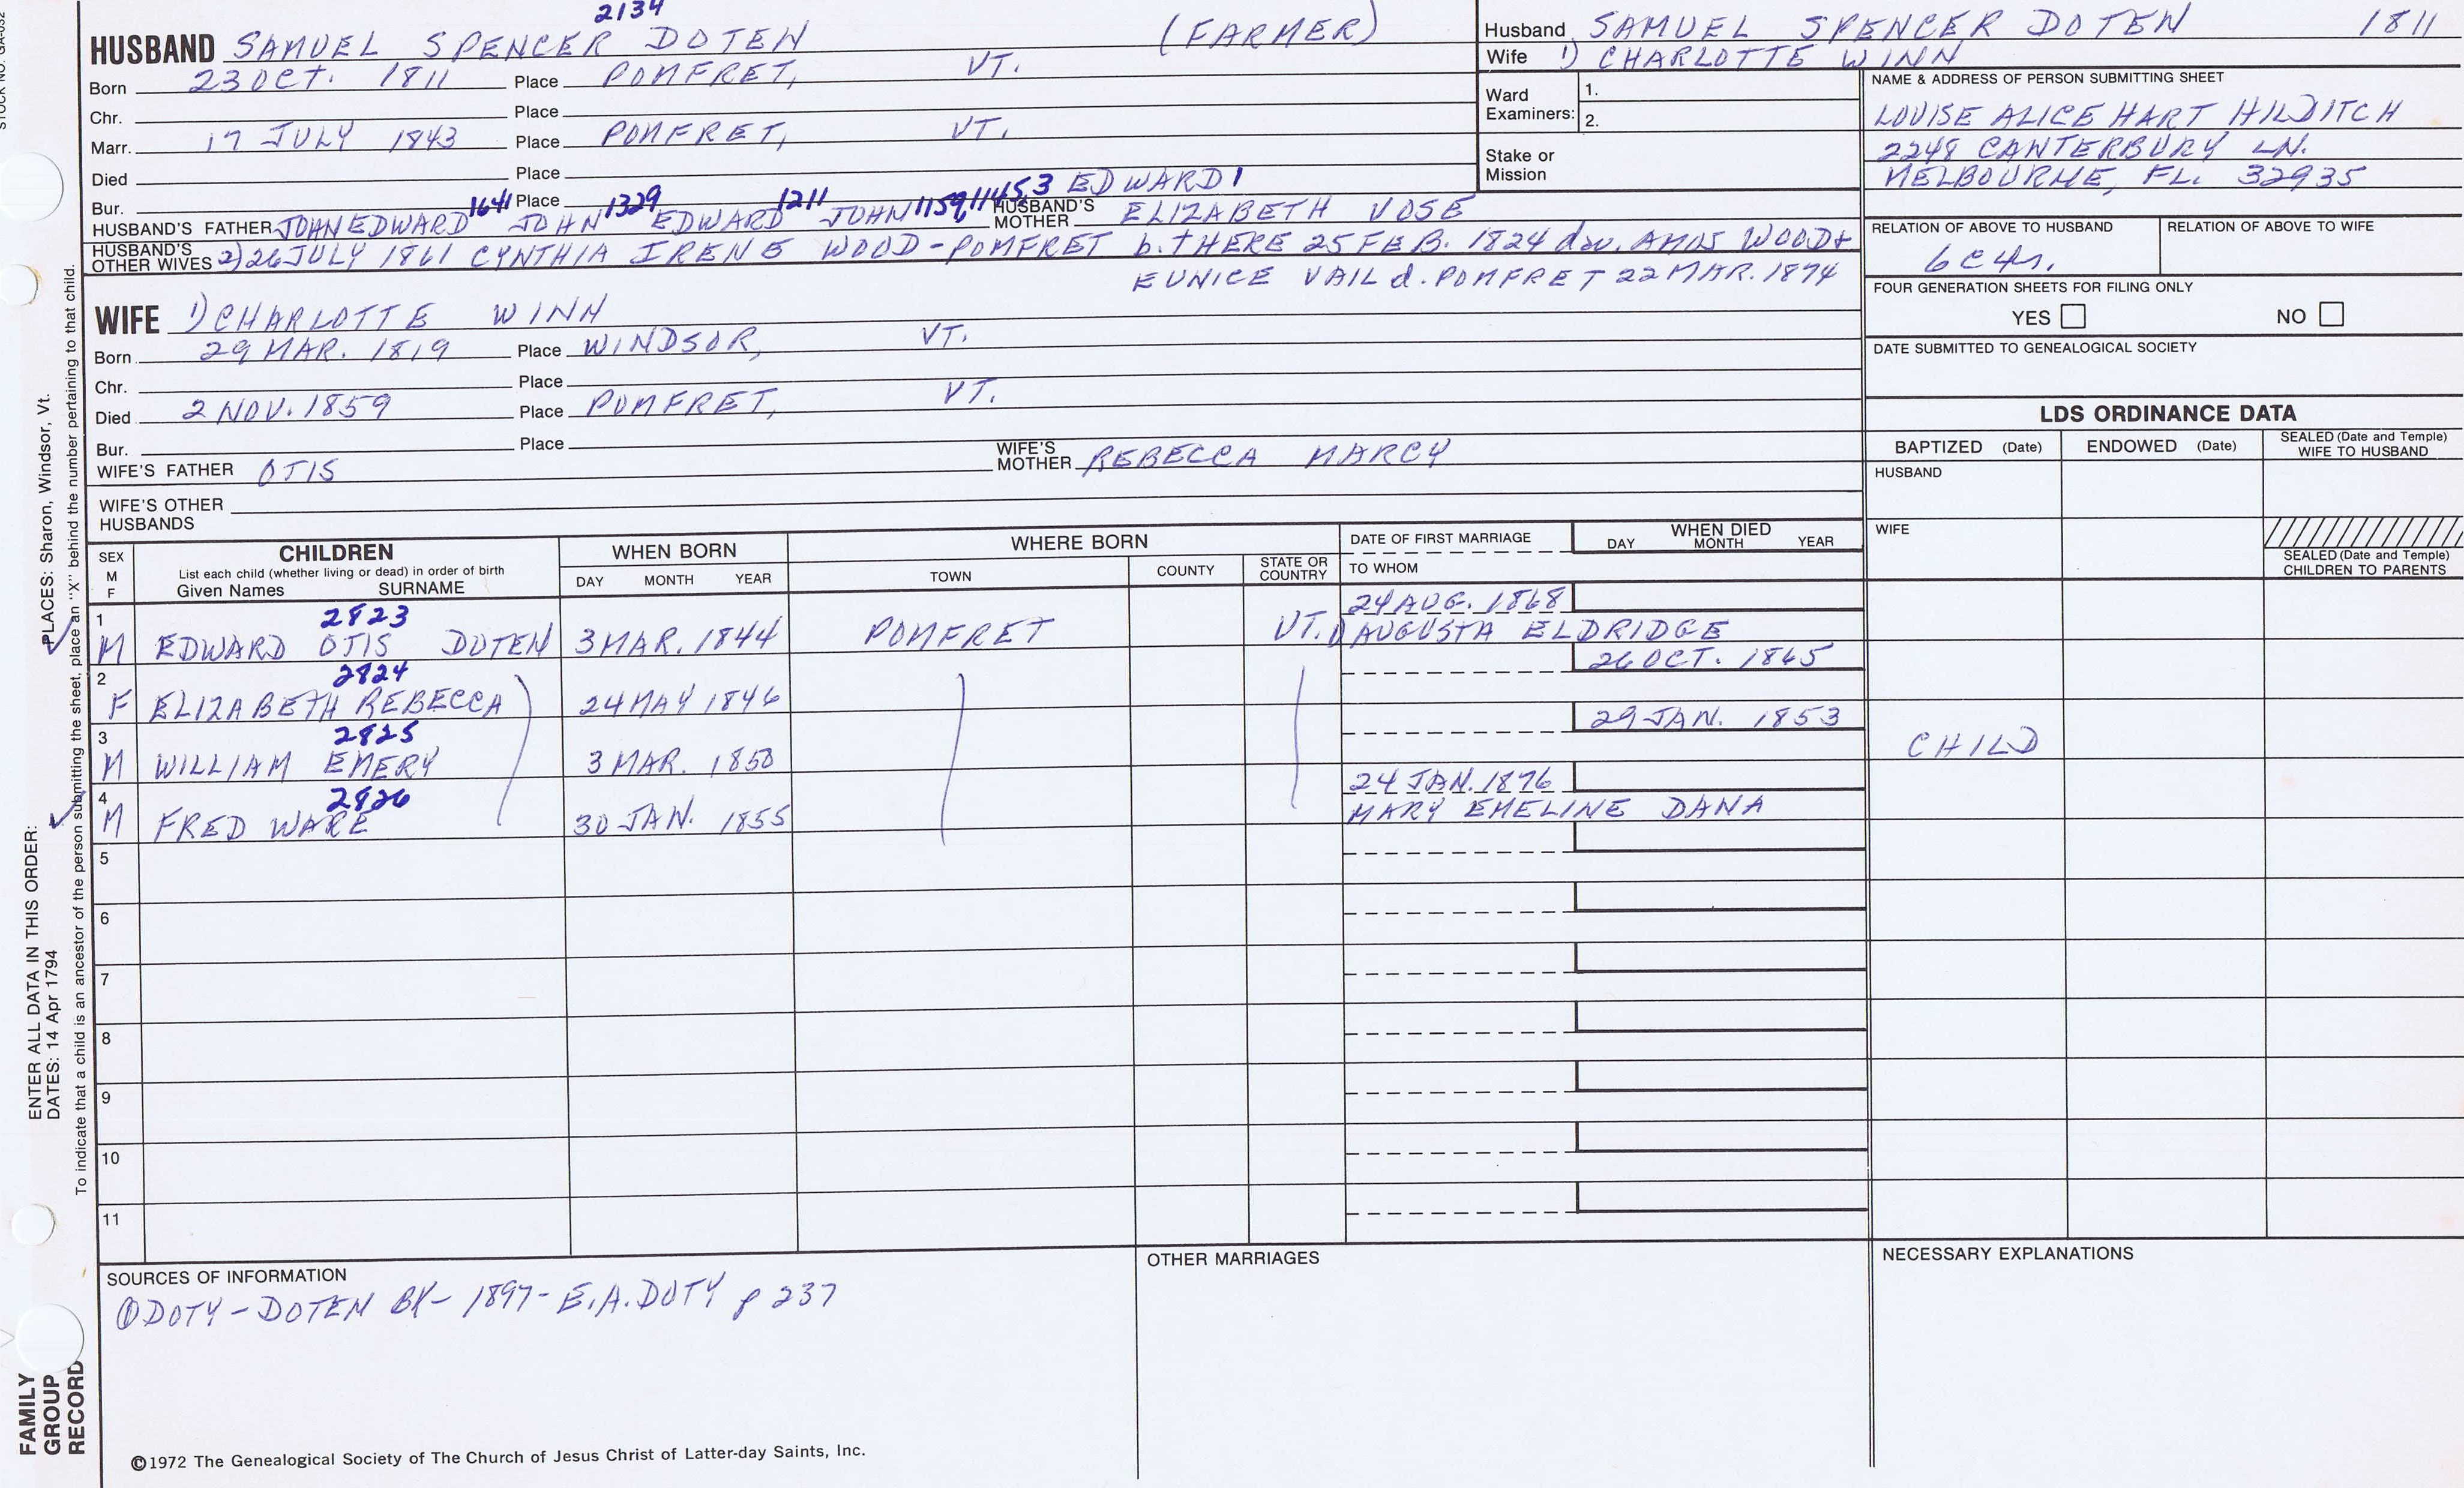 STOCK NO. GA-032
2134
HUSBAND SAMUEL SPENCER DOTEN (FARMER)
Born 23 OCT. 1811 Place POMFRET, VT.
Chr. Place
Marr. 17 JULY 1843 Place POMFRET, VT.
Died Place
Bur. Place
HUSBAND'S FATHER JOHN EDWARD 1641 JOHN 1329 EDWARD 1211 JOHN 1159, 1145, 3 EDWARD 1 HUSBAND'S MOTHER ELIZABETH VOSE
HUSBAND'S OTHER WIVES 2) 26 JULY 1861 CYNTHIA IRENE WOOD - POMFRET b. THERE 25 FEB. 1824 dau. AMOS WOOD +
EUNICE VAIL d. POMFRET 22 MAR. 1874
WIFE 1) CHARLOTTE WINN
Born 29 MAR. 1819 Place WINDSOR, VT.
Chr. Place
Died 2 NOV. 1859 Place POMFRET, VT.
Bur. Place
WIFE'S FATHER OTIS WIFE'S MOTHER REBECCA MARCY
WIFE'S OTHER HUSBANDS
Husband SAMUEL SPENCER DOTEN 1811
Wife 1) CHARLOTTE WINN
Ward Examiners: 1.
2.
Stake or Mission
NAME & ADDRESS OF PERSON SUBMITTING SHEET
LOUISE ALICE HART HILDITCH
2248 CANTERBURY LN.
MELBOURNE, FL. 32935
RELATION OF ABOVE TO HUSBAND RELATION OF ABOVE TO WIFE
6C4r.
FOUR GENERATION SHEETS FOR FILING ONLY
YES NO
DATE SUBMITTED TO GENEALOGICAL SOCIETY
LDS ORDINANCE DATA
BAPTIZED (Date) ENDOWED (Date) SEALED (Date and Temple) WIFE TO HUSBAND
HUSBAND
WIFE
SEALED (Date and Temple) CHILDREN TO PARENTS
SEX M F
CHILDREN
List each child (whether living or dead) in order of birth
Given Names SURNAME
WHEN BORN
DAY MONTH YEAR
WHERE BORN
TOWN COUNTY STATE OR COUNTRY
DATE OF FIRST MARRIAGE
TO WHOM
WHEN DIED
DAY MONTH YEAR
1 2823 24 AUG. 1868
M EDWARD OTIS DOTEN 3 MAR. 1844 POMFRET VT. 1) AUGUSTA ELDRIDGE
2 2824 26 OCT. 1865
F ELIZABETH REBECCA 24 MAY 1846
3 2825 29 JAN. 1853
M WILLIAM EMERY 3 MAR. 1850 CHILD
4 2826 24 JAN. 1876
M FRED WARE 30 JAN. 1855 MARY EMELINE DANA
5
6
7
8
9
10
11
SOURCES OF INFORMATION
① DOTY - DOTEN BK - 1897 - E.A. DOTY p 237
OTHER MARRIAGES
NECESSARY EXPLANATIONS
©1972 The Genealogical Society of The Church of Jesus Christ of Latter-day Saints, Inc.
FAMILY GROUP RECORD
ENTER ALL DATA IN THIS ORDER:
DATES: 14 Apr 1794 PLACES: Sharon, Windsor, Vt.
To indicate that a child is an ancestor of the person submitting the sheet, place an "X" behind the number pertaining to that child.